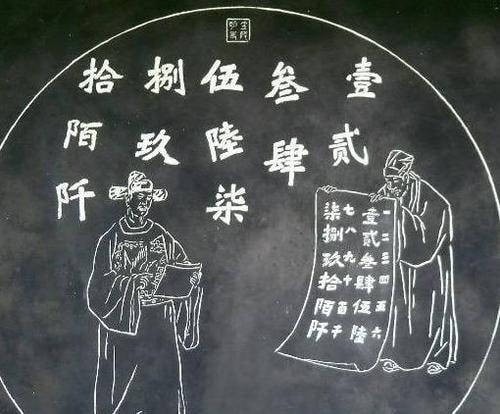 壹贰
叁肆
伍陸柒
捌玖
拾陌阡
一二三四五六
壹贰叁肆伍陸
七八九十百千
柒捌玖拾陌阡